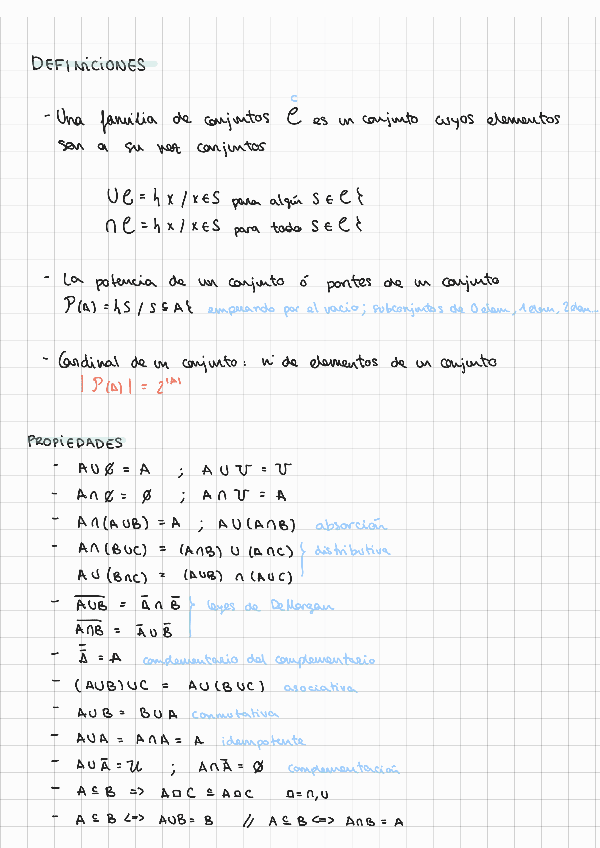 DEFINICIONES
C
- Una familia de conjuntos C es un conjunto cuyos elementos
son a su vez conjuntos
∪C = { x / x ∈ S para algún S ∈ C }
∩C = { x / x ∈ S para todo S ∈ C }
- La potencia de un conjunto ó partes de un conjunto
P(A) = { S / S ⊆ A } empezando por el vacío; subconjuntos de 0 elem, 1 elem, 2 elem...
- Cardinal de un conjunto: nº de elementos de un conjunto
|P(A)| = 2^|A|
PROPIEDADES
- A ∪ ∅ = A ; A ∪ U = U
- A ∩ ∅ = ∅ ; A ∩ U = A
- A ∩ (A ∪ B) = A ; A ∪ (A ∩ B) absorción
- A ∩ (B ∪ C) = (A ∩ B) ∪ (A ∩ C) } distributiva
A ∪ (B ∩ C) = (A ∪ B) ∩ (A ∪ C)
- A̅ ∪̅ B̅ = A̅ ∩ B̅ } leyes de DeMorgan
A̅ ∩̅ B̅ = A̅ ∪ B̅
- A̿ = A complementario del complementario
- (A ∪ B) ∪ C = A ∪ (B ∪ C) asociativa
- A ∪ B = B ∪ A conmutativa
- A ∪ A = A ∩ A = A idempotente
- A ∪ A̅ = U ; A ∩ A̅ = ∅ complementación
- A ⊆ B => A □ C ⊆ A □ C □ = ∩, ∪
- A ⊆ B <=> A ∪ B = B // A ⊆ B <=> A ∩ B = A